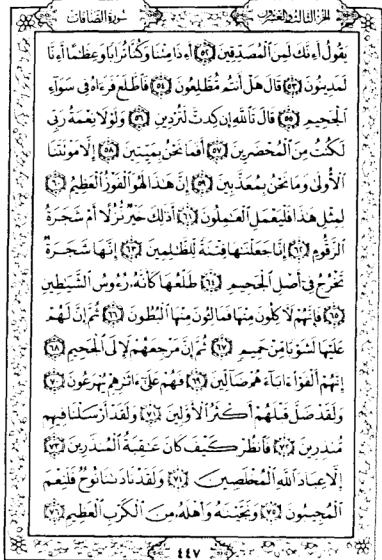 الجزء الثالث والعشرون سورة الصافات
يَقُولُ أَءِنَّكَ لَمِنَ ٱلْمُصَدِّقِينَ ﴿٥٢﴾ أَءِذَا مِتْنَا وَكُنَّا تُرَابًا وَعِظَٰمًا أَءِنَّا
لَمَدِينُونَ ﴿٥٣﴾ قَالَ هَلْ أَنتُم مُّطَّلِعُونَ ﴿٥٤﴾ فَٱطَّلَعَ فَرَءَاهُ فِى سَوَآءِ
ٱلْجَحِيمِ ﴿٥٥﴾ قَالَ تَٱللَّهِ إِن كِدتَّ لَتُرْدِينِ ﴿٥٦﴾ وَلَوْلَا نِعْمَةُ رَبِّى
لَكُنتُ مِنَ ٱلْمُحْضَرِينَ ﴿٥٧﴾ أَفَمَا نَحْنُ بِمَيِّتِينَ ﴿٥٨﴾ إِلَّا مَوْتَتَنَا
ٱلْأُولَىٰ وَمَا نَحْنُ بِمُعَذَّبِينَ ﴿٥٩﴾ إِنَّ هَٰذَا لَهُوَ ٱلْفَوْزُ ٱلْعَظِيمُ ﴿٦٠﴾
لِمِثْلِ هَٰذَا فَلْيَعْمَلِ ٱلْعَٰمِلُونَ ﴿٦١﴾ أَذَٰلِكَ خَيْرٌ نُّزُلًا أَمْ شَجَرَةُ
ٱلزَّقُّومِ ﴿٦٢﴾ إِنَّا جَعَلْنَٰهَا فِتْنَةً لِّلظَّٰلِمِينَ ﴿٦٣﴾ إِنَّهَا شَجَرَةٌ
تَخْرُجُ فِىٓ أَصْلِ ٱلْجَحِيمِ ﴿٦٤﴾ طَلْعُهَا كَأَنَّهُۥ رُءُوسُ ٱلشَّيَٰطِينِ
﴿٦٥﴾ فَإِنَّهُمْ لَءَاكِلُونَ مِنْهَا فَمَالِـُٔونَ مِنْهَا ٱلْبُطُونَ ﴿٦٦﴾ ثُمَّ إِنَّ لَهُمْ
عَلَيْهَا لَشَوْبًا مِّنْ حَمِيمٍ ﴿٦٧﴾ ثُمَّ إِنَّ مَرْجِعَهُمْ لَإِلَى ٱلْجَحِيمِ ﴿٦٨﴾
إِنَّهُمْ أَلْفَوْا۟ ءَابَآءَهُمْ ضَآلِّينَ ﴿٦٩﴾ فَهُمْ عَلَىٰٓ ءَاثَٰرِهِمْ يُهْرَعُونَ ﴿٧٠﴾
وَلَقَدْ ضَلَّ قَبْلَهُمْ أَكْثَرُ ٱلْأَوَّلِينَ ﴿٧١﴾ وَلَقَدْ أَرْسَلْنَا فِيهِم
مُّنذِرِينَ ﴿٧٢﴾ فَٱنظُرْ كَيْفَ كَانَ عَٰقِبَةُ ٱلْمُنذَرِينَ ﴿٧٣﴾
إِلَّا عِبَادَ ٱللَّهِ ٱلْمُخْلَصِينَ ﴿٧٤﴾ وَلَقَدْ نَادَىٰنَا نُوحٌ فَلَنِعْمَ
ٱلْمُجِيبُونَ ﴿٧٥﴾ وَنَجَّيْنَٰهُ وَأَهْلَهُۥ مِنَ ٱلْكَرْبِ ٱلْعَظِيمِ ﴿٧٦﴾
٤٤٧